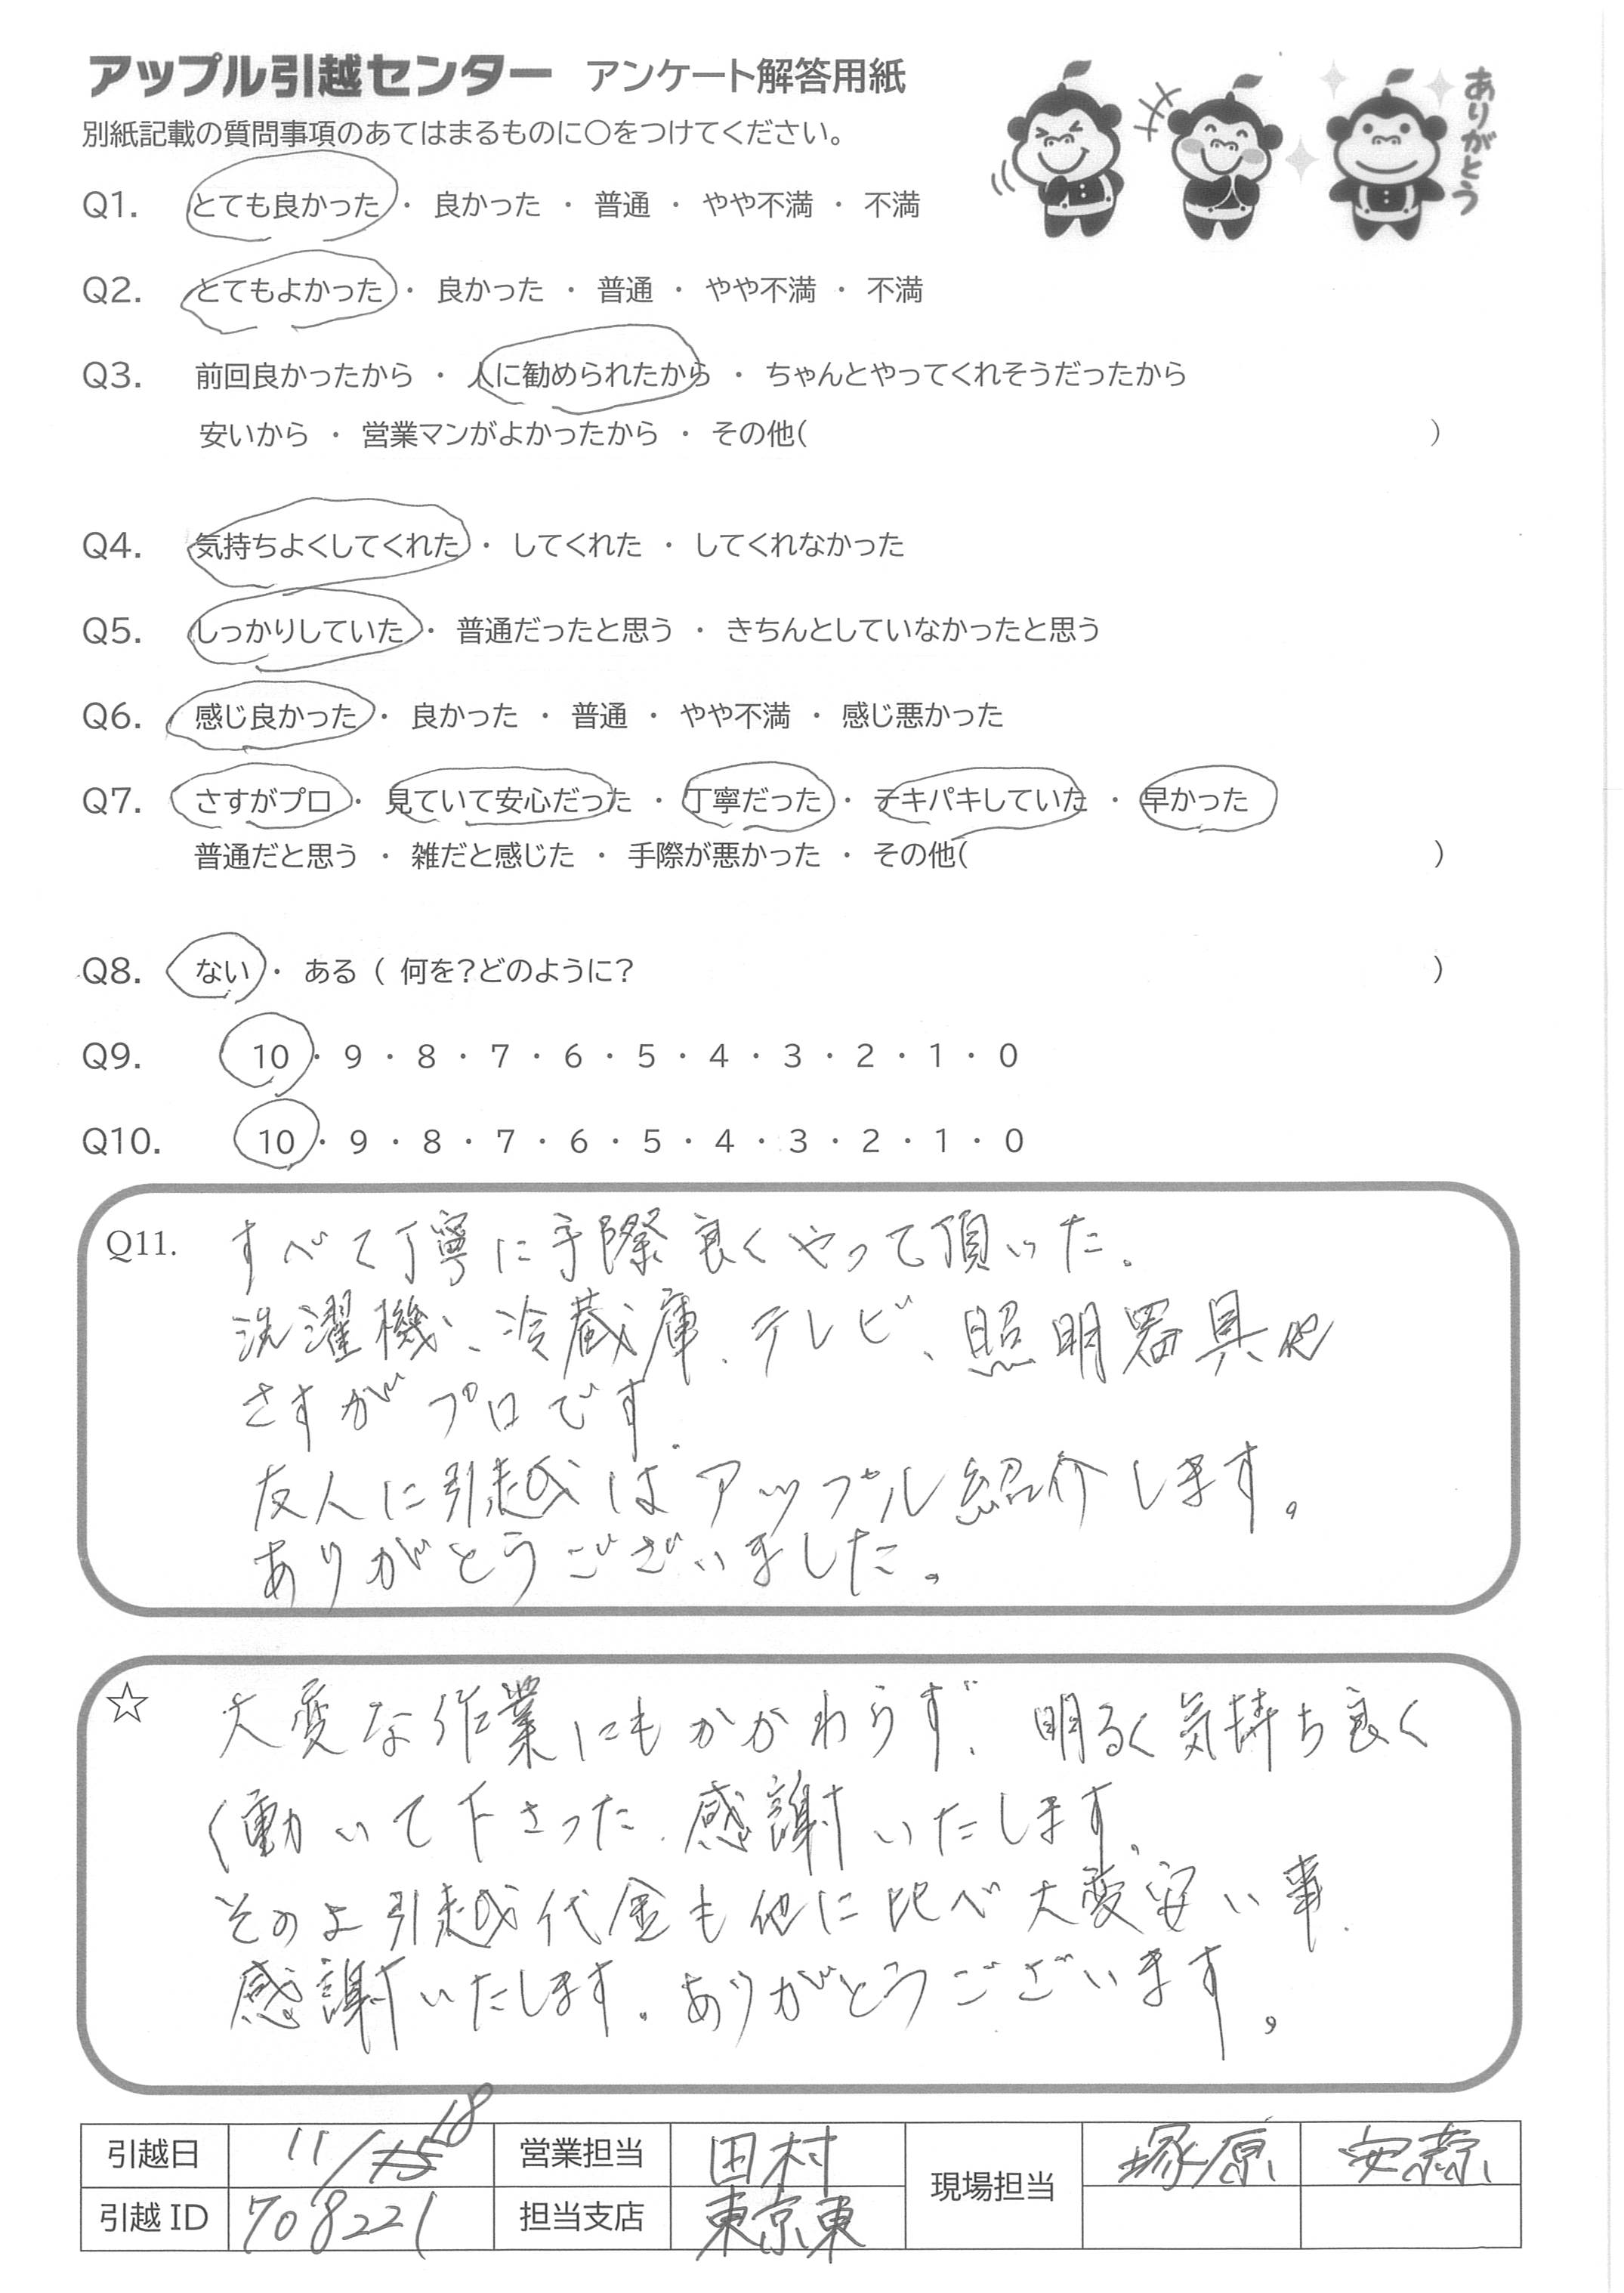 アップル引越センター アンケート解答用紙
別紙記載の質問事項のあてはまるものに○をつけてください。
ありがとう
Q1. とても良かった ・ 良かった ・ 普通 ・ やや不満 ・ 不満
Q2. とてもよかった ・ 良かった ・ 普通 ・ やや不満 ・ 不満
Q3. 前回良かったから ・ 人に勧められたから ・ ちゃんとやってくれそうだったから
安いから ・ 営業マンがよかったから ・ その他( )
Q4. 気持ちよくしてくれた ・ してくれた ・ してくれなかった
Q5. しっかりしていた ・ 普通だったと思う ・ きちんとしていなかったと思う
Q6. 感じ良かった ・ 良かった ・ 普通 ・ やや不満 ・ 感じ悪かった
Q7. さすがプロ ・ 見ていて安心だった ・ 丁寧だった ・ テキパキしていた ・ 早かった
普通だと思う ・ 雑だと感じた ・ 手際が悪かった ・ その他( )
Q8. ない ・ ある ( 何を?どのように? )
Q9. 10 ・ 9 ・ 8 ・ 7 ・ 6 ・ 5 ・ 4 ・ 3 ・ 2 ・ 1 ・ 0
Q10. 10 ・ 9 ・ 8 ・ 7 ・ 6 ・ 5 ・ 4 ・ 3 ・ 2 ・ 1 ・ 0
Q11. すべて丁寧に手際良くやって頂いた。
洗濯機、冷蔵庫、テレビ、照明器具他
さすがプロです。
友人に引越はアップル紹介します。
ありがとうございました。
☆ 大変な作業にもかかわらず、明るく気持ち良く
く働いて下さった。感謝いたします。
そのよ引越代金も他に比べ大変安い事、
感謝いたします。ありがとうございます。
引越日 11/18 営業担当 田村 現場担当 塚原 安蒜
引越ID 708221 担当支店 東京東